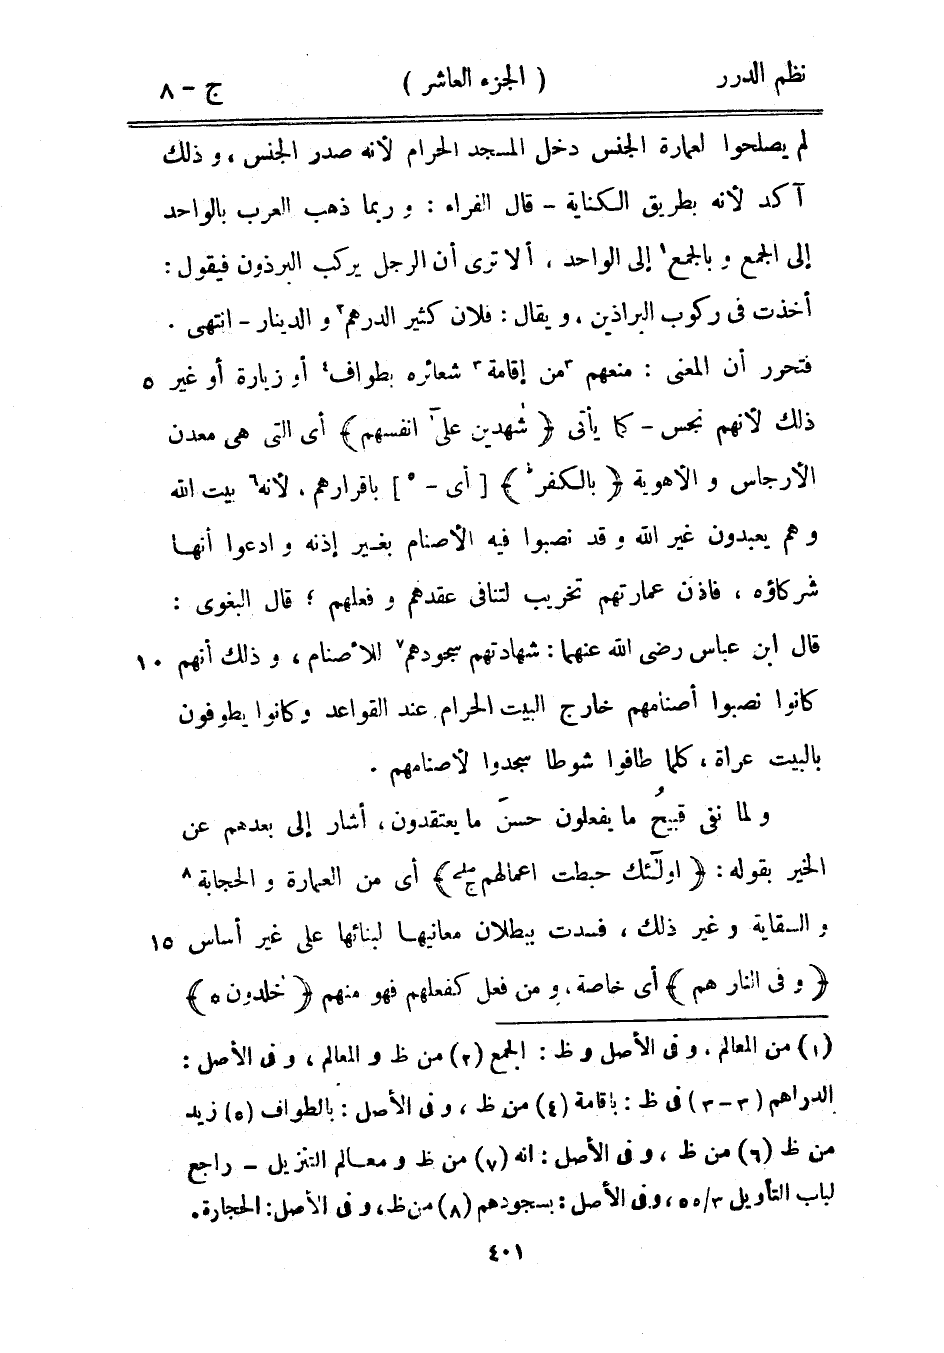 نظم الدرر ( الجزء العاشر ) ج - ٨
لم يصلحوا لعمارة الجنس دخل المسجد الحرام لأنه صدر الجنس ، و ذلك
آكد لأنه بطريق الكناية - قال الفراء : و ربما ذهب العرب بالواحد
إلى الجمع و بالجمع١ إلى الواحد ، ألا ترى أن الرجل يركب البرذون فيقول :
أخذت فى ركوب البراذين ، و يقال : فلان كثير الدرهم٢ و الدينار - انتهى .
فتحرر أن المعنى : منعهم ٣من إقامة٣ شعائره بطواف٤ أو زيارة أو غير ٥
ذلك لأنهم نجس - كما يأتى ﴿ شٰهدين علىٓ انفسهم ﴾ أى التى هى معدن
الأرجاس و الأهوية ﴿ بالكفر ط ﴾ [ أى - ٥ ] باقرارهم ، لأنه٦ بيت الله
و هم يعبدون غير الله و قد نصبوا فيه الأصنام بغير إذنه و ادعوا أنها
شركاؤه ، فاذن عمارتهم تخريب لتنافى عقدهم و فعلهم ؛ قال البغوى :
قال ابن عباس رضى الله عنهما : شهادتهم سجودهم٧ للأصنام ، و ذلك أنهم ١٠
كانوا نصبوا أصنامهم خارج البيت الحرام عند القواعد وكانوا يطوفون
بالبيت عراة ، كلما طافوا شوطا سجدوا لأصنامهم .
و لما نفى قبيحُ ما يفعلون حسنَ ما يعتقدون ، أشار إلى بعدهم عن
الخير بقوله : ﴿ اولٓئك حبطت اعمالهم صلے ج ﴾ أى من العمارة و الحجابة٨
و السقاية و غير ذلك ، فسدت ببطلان معانيها لبنائها على غير أساس ١٥
﴿ و فى النار هم ﴾ أى خاصة ، و من فعل كفعلهم فهو منهم ﴿ خٰلدون ه ﴾
(١) من المعالم ، و فى الأصل و ظ : الجمع (٢) من ظ و المعالم ، و فى الأصل :
الدراهم (٣-٣) فى ظ : باقامة (٤) من ظ ، و فى الأصل : بالطواف (٥) زيد
من ظ (٦) من ظ ، و فى الأصل : انه (٧) من ظ و معالم التنزيل - راجع
لباب التأويل ٣/٥٥ ، و فى الأصل : بسجودهم (٨) من ظ ، و فى الأصل : الحجارة .
٤٠١